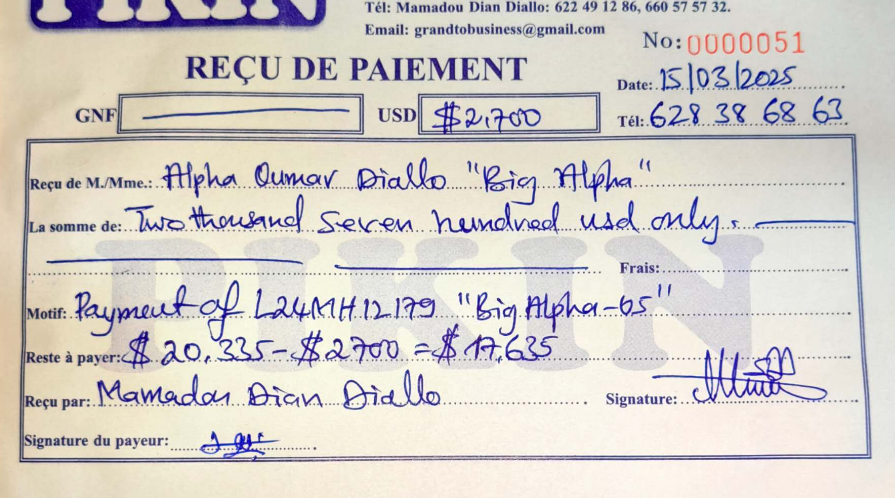 PIKIN
Tél: Mamadou Dian Diallo: 622 49 12 86, 660 57 57 32.
Email: grandtobusiness@gmail.com
No: 0000051
REÇU DE PAIEMENT
Date: 15/03/2025
GNF USD $2,700 Tél: 628 38 68 63
Reçu de M./Mme.: Alpha Oumar Diallo "Big Alpha"
La somme de: Two thousand Seven hundred usd only.
Frais:
Motif: Payment of L24MH12179 "Big Alpha-65"
Reste à payer: $ 20,335-$2700 = $ 17,635
Reçu par: Mamadou Dian Diallo Signature:
Signature du payeur:
PIKIN